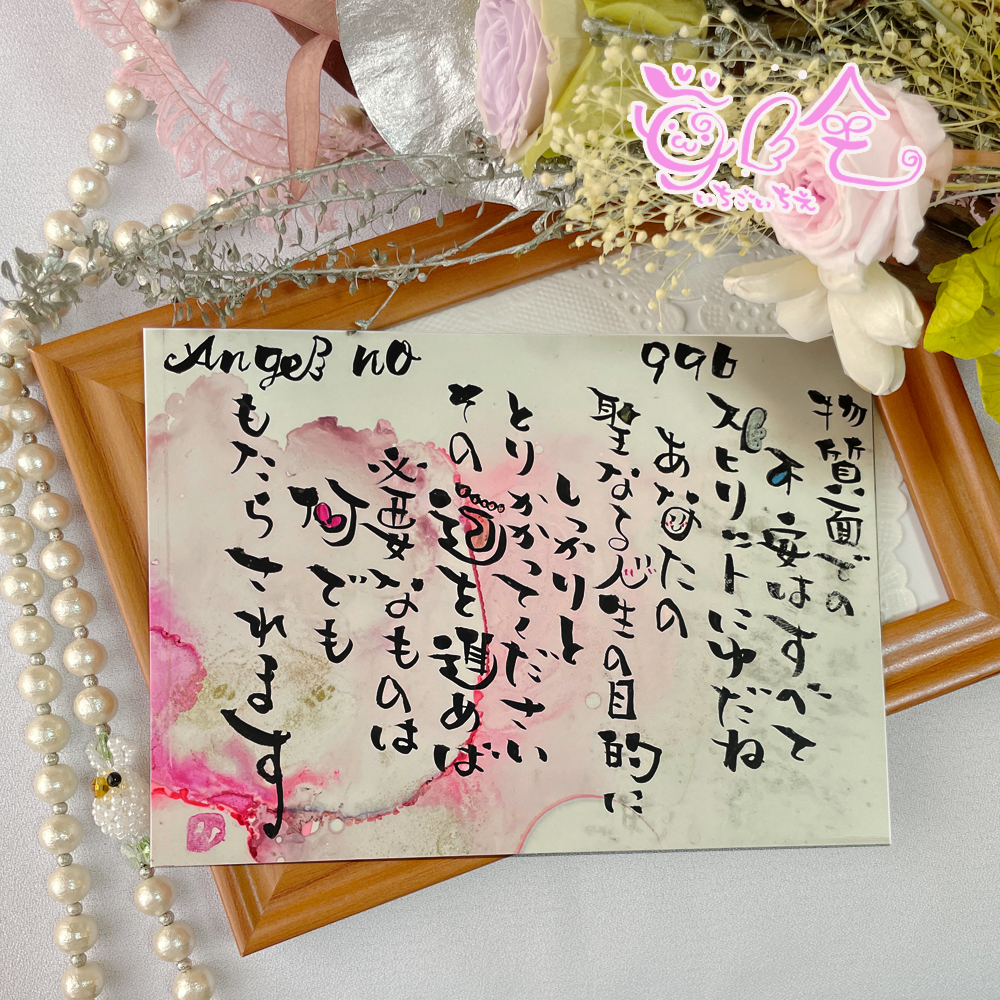 いちごいちえ
Angel no 996
物質面での
不安はすべて
スピリットにゆだね
あなたの
聖なる人生の目的に
しっかりと
とりかかってください
その道を進めば
必要なものは
何でも
もたらされます